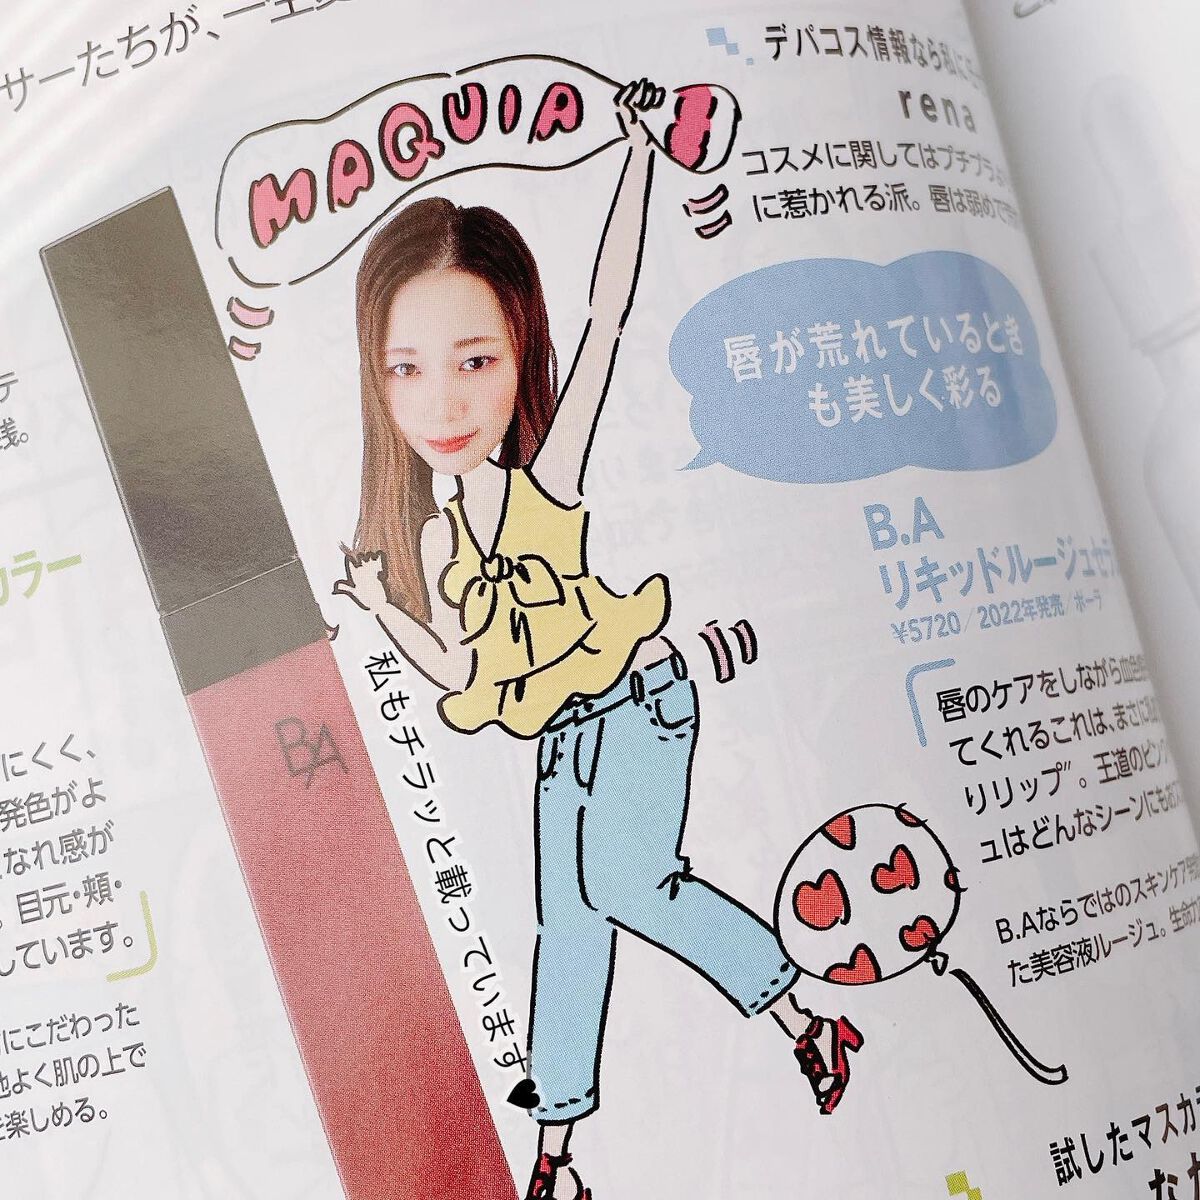 サーたちが、一
デパコス情報なら私に
rena
コスメに関してはプチプラ
に惹かれる派。唇は弱めで
MAQUIA
唇が荒れているとき
も美しく彩る
B.A
リキッドルージュセ
¥5720/2022年発売/ポーラ
唇のケアをしながら血色
てくれるこれは、まさに
りリップ"。王道のピン
ュはどんなシーンにも
B.Aならではのスキンケア
た美容液ルージュ。生命
BA
私もチラッと載っています♥
テ
浅。
カラー
にくく、
発色がよ
なれ感が
。目元・頬・
しています。
にこだわった
地よく肌の上で
を楽しめる。
試したマスカラ
なか